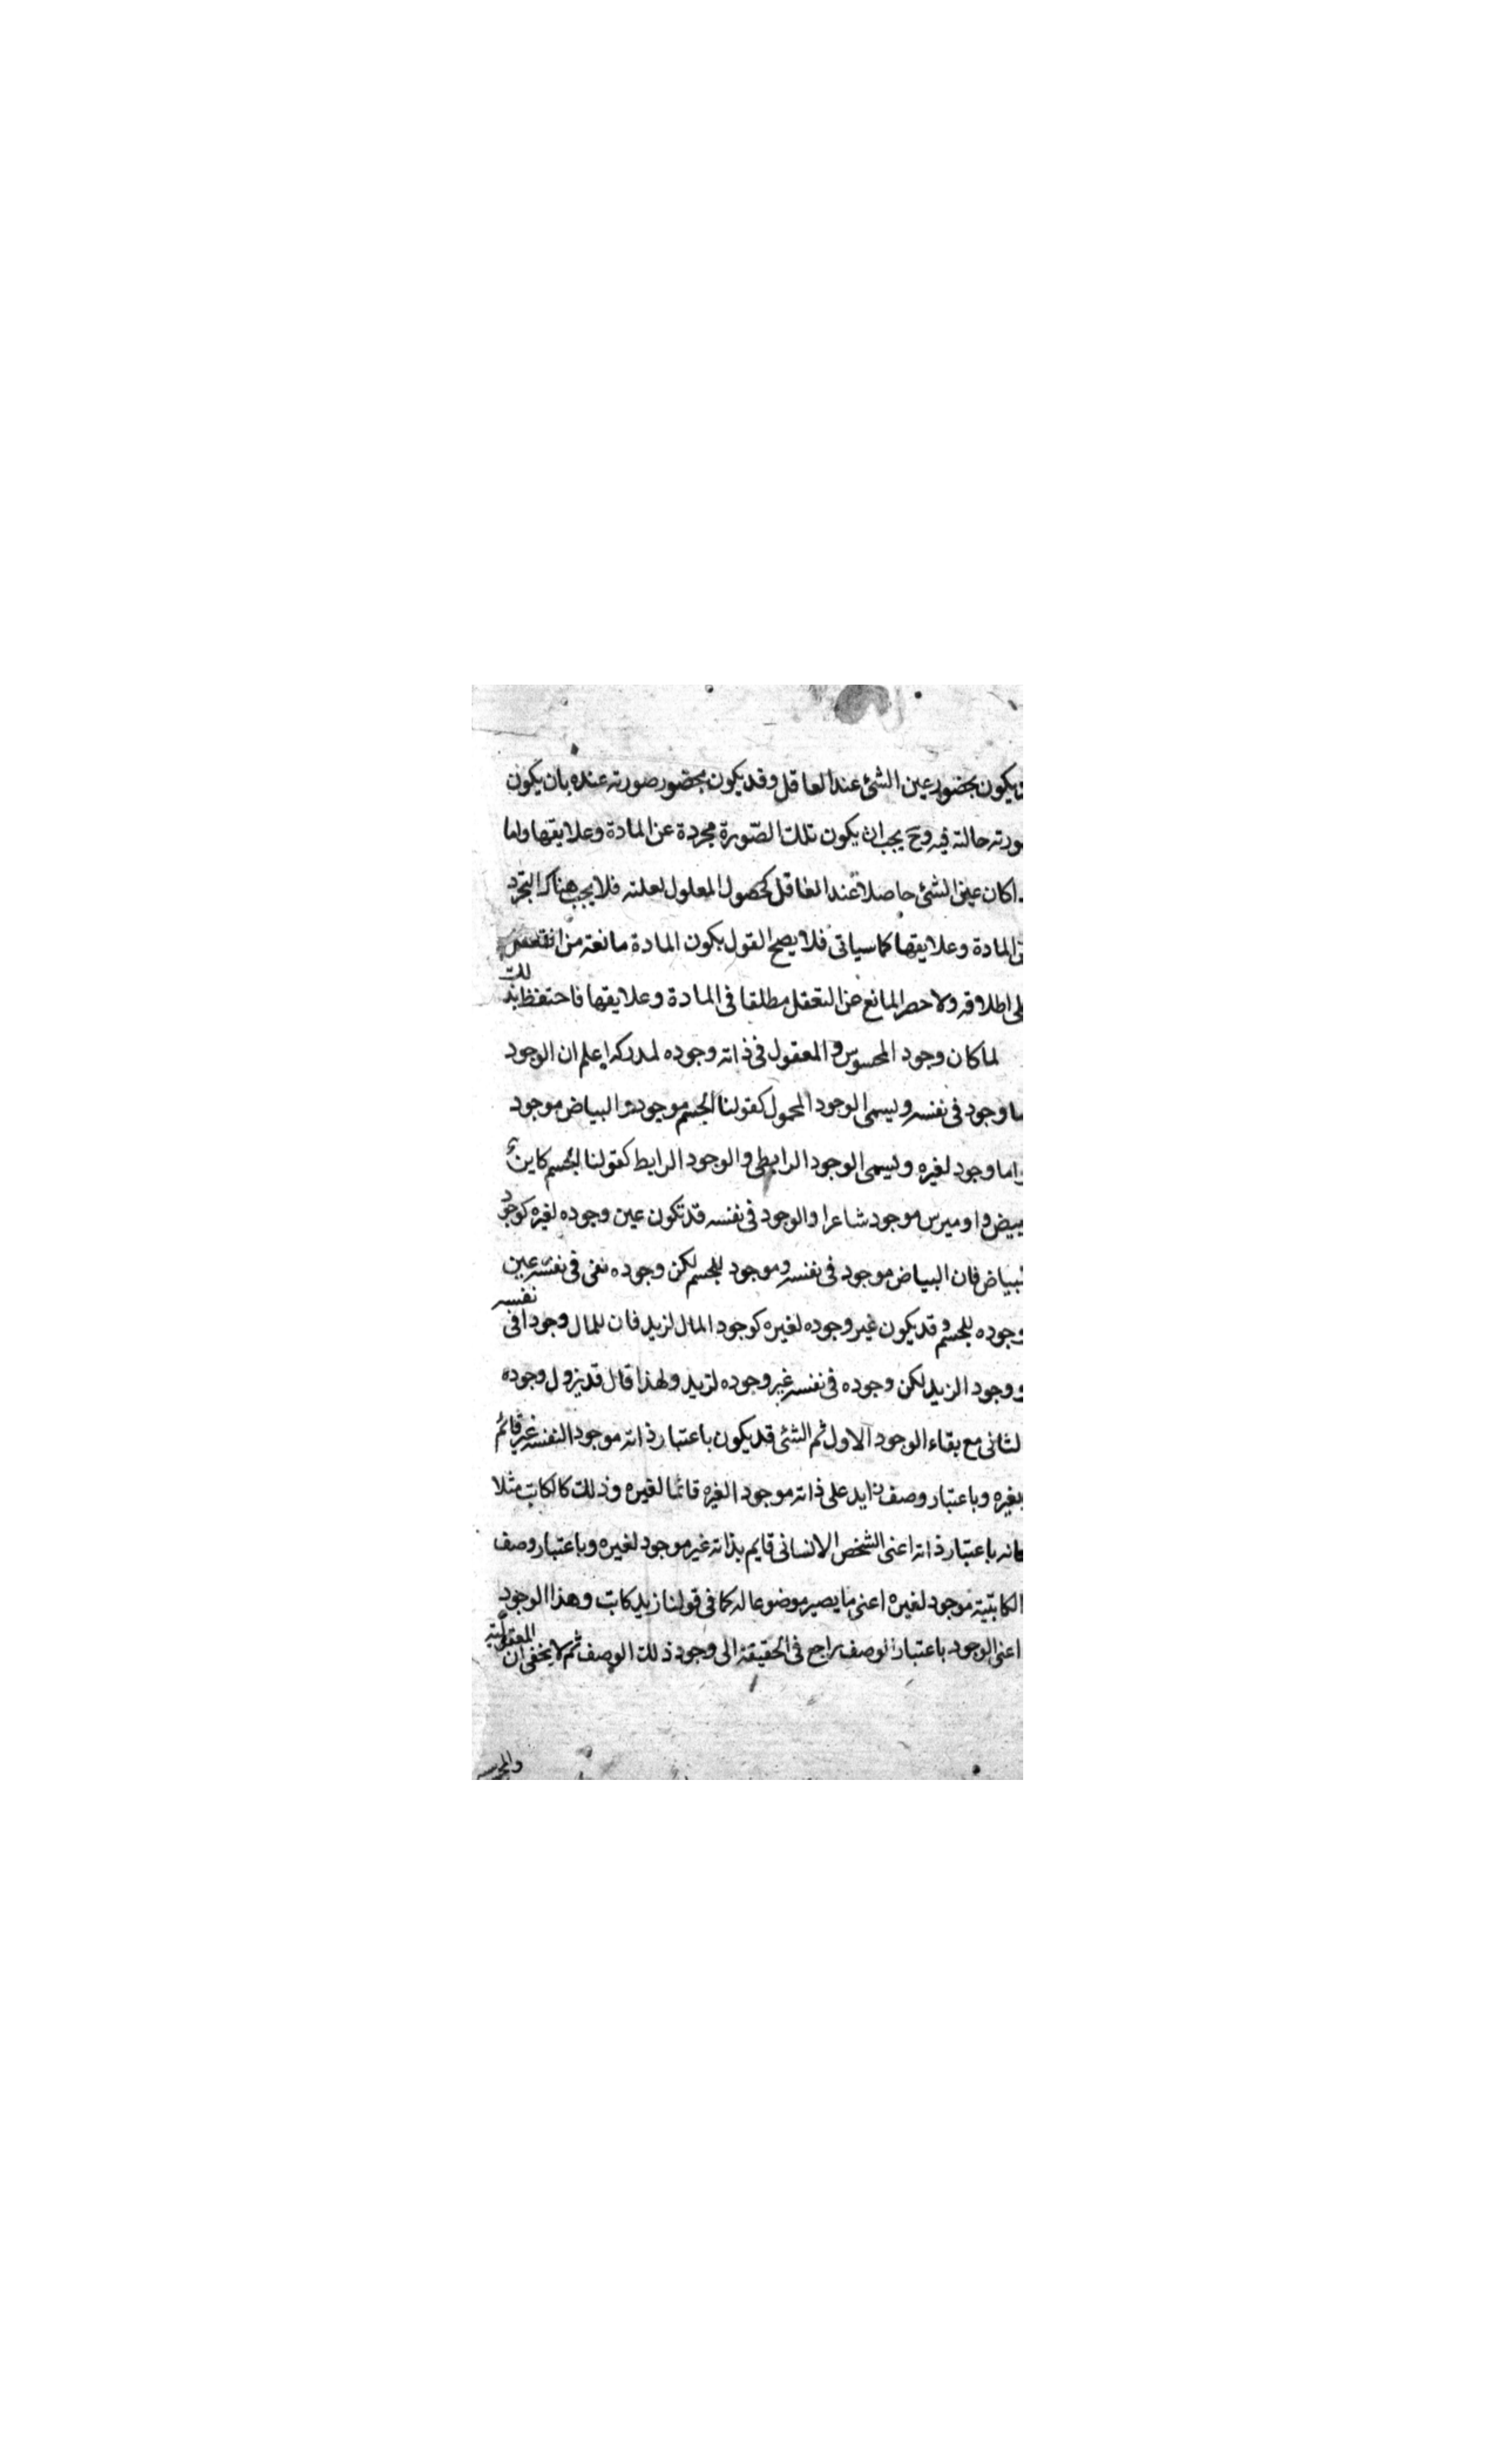 يكون بحضور عين الشئ عند العاقل وقد يكون بحضور صورته عنده بان يكون
ورته حالته فيه وح يجب ان يكون تلك الصّورة مجردة عن المادة وعلايقها واما
اكان عين الشئ حاصلا عند العاقل كحصول المعلول لعلته فلا يجب هناك التجرد
المادة وعلايقها كما سياتى فلا يصح القول بكون المادة مانعته من التعقل
لى اطلاقه ولا حصر المانع عن التعقل مطلقا فى المادة وعلايقها فاحتفظ بذلك
لما كان وجود المحسوس والمعقول فى ذاته وجوده لمدركه اعلم ان الوجود
ما وجود فى نفسه ويسمى الوجود المحمول كقولنا الجسم موجود والبياض موجود
واما وجود لغيره ويسمى الوجود الرابطى والوجود الرابط كقولنا الجسم كاين
بيض واوميرس موجود شاعرا والوجود فى نفسه قد تكون عين وجوده لغيره كوجود
لبياض فان البياض موجود فى نفسه وموجود للجسم لكن وجوده نفى فى نفسه عين
وجوده للجسم وقد يكون غير وجوده لغيره كوجود المال لزيد فان للمال وجودا فى نفسه
ووجود الزيد لكن وجوده فى نفسه غير وجوده لزيد ولهذا قال قد يزول وجوده
لثانى مع بقاء الوجود الاول ثم الشئ قد يكون باعتبار ذاته موجود النفسه غير قائم
بغيره وباعتبار وصف زايد على ذاته موجود الغيره قائما لغيره وذلك كالكاتب مثلا
فانه باعتبار ذاته اعنى الشخص الانسانى قايم بذاته غير موجود لغيره وباعتبار وصف
الكاتبتيته موجود لغيره اعنى ما يصير موضوعا له كما فى قولنا زيد كاتب وهذا الوجود
اعنى الوجود باعتبار الوصف راجع فى الحقيقة الى وجود ذلك الوصف ثم لا يخفى ان المعقوليته